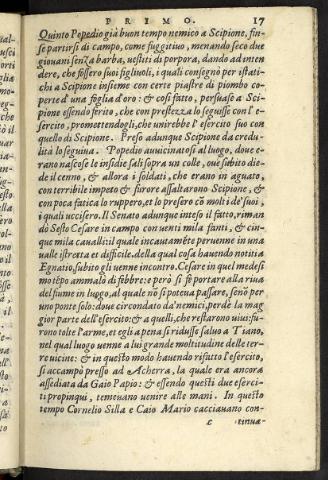 PRIMO. 17
Quinto Popedio già buon tempo nemico a Scipione, fin-
se partirsi di campo, come fuggitiuo, menando seco due
giouani senza barba, uestiti di porpora, dando ad inten
dere, che fossero suoi figliuoli, i quali consegnò per istati-
chi a Scipione insieme con certe piastre di piombo co-
perte d'una foglia d'oro: & cosi fatto, persuase a Sci-
pione essendo ferito, che con prestezza lo seguisse con l'e-
sercito, promettendogli, che unirebbe l'esercito suo con
quello di Scipione. Preso adunque Scipione da credu-
lità lo seguiua. Popedio auuicinatosi al luogo, doue e-
rano nascose le insidie sali sopra un colle, oue subito die-
de il cenno, & allora i soldati, che erano in aguato,
con terribile impeto & furore assaltarono Scipione, & 
con poca fatica lo ruppero, et lo presero cō molti de' suoi,
i quali uccisero. Il Senato adunque inteso il fatto, riman
dò Sesto Cesare in campo con uenti mila fanti, & cin-
que mila caualli: il quale incautamēte peruenne in una
ualle istretta et difficile. della qual cosa hauendo notitia
Egnatio, subito gli uenne incontro. Cesare in quel medesi
mo tēpo ammalò di febbre: e però si fe portare alla riua
del fiume in luogo, al quale nō si poteua passare, se nō per
uno ponte solo: doue circondato da' nemici, perdè la mag
gior parte dell'esercito: & a quelli, che restarono uiui: fu-
rono tolte l'arme, et egli a pena si ridusse saluo a Tiano,
nel qual luogo uenne a lui grande moltitudine delle ter-
re uicine: & in questo modo hauendo rifatto l'esercito,
si accampò presso ad Acherra, la quale era ancora
assediata da Gaio Papio: & essendo questi due eserci-
ti propinqui, temeuano uenire alle mani. In questo
tempo Cornelio Silla e Caio Mario cacciauano con-
c tinua-